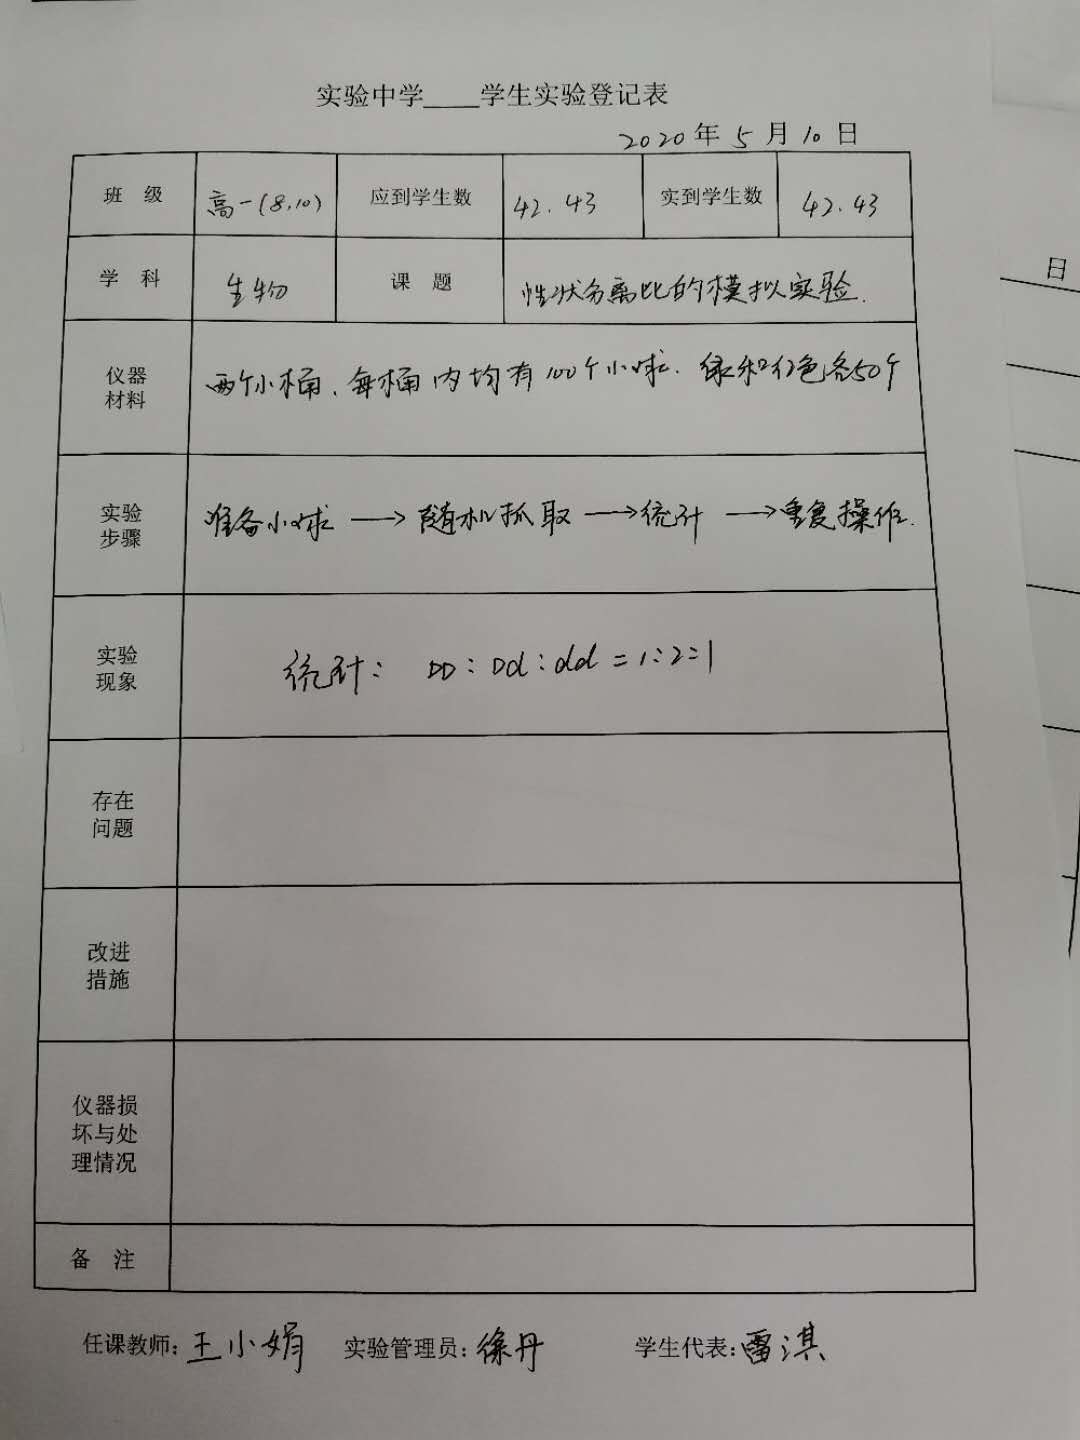 实验中学____学生实验登记表
2020年5月10日
班 级 高一(8,10) 应到学生数 42.43 实到学生数 42.43
学 科 生物 课 题 性状分离比的模拟实验.
仪器
材料
两个小桶、每桶内均有100个小球. 绿和红色各50个
实验
步骤
准备小球 → 随机抓取 → 统计 → 重复操作.
实验
现象
统计: DD:Dd:dd=1:2=1
存在
问题
改进
措施
仪器损
坏与处
理情况
备 注
任课教师:王小娟 实验管理员:徐丹 学生代表:雷淇
日